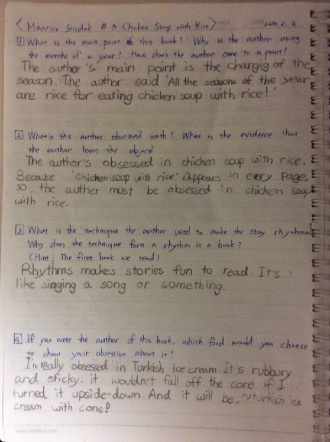 < Maurice Sendak #3 Chicken Soup with Rice >
1 What is the main point of this book? Why is the author using
the months of a year? How does the author come to a point?
The author's main point is the changing of the
season. The author said 'All the seasons of the year
are nice for eating chicken soup with rice!'
2 What is the author obsessed with? What is the evidence that
the author loves the object?
The author's obsessed in chicken soup with rice.
Because 'chicken soup with rice' appears in every page
so, the author must be obsessed in chicken soup
with rice.
3 What is the technique the author used to make the story rhythmic?
Why does the technique form a rhythm in a book?
The first book we read
Rhythms makes stories fun to read. It's
like singing a song or something.
4 If you were the author of this book, which food would you choose
to show your obsession about it?
I'm really obsessed in Turkish ice cream. It's rubbery
and sticky, it wouldn't fall off the cone if I
turned it upside-down. And it will be, 'turkish ice
cream with cone!'